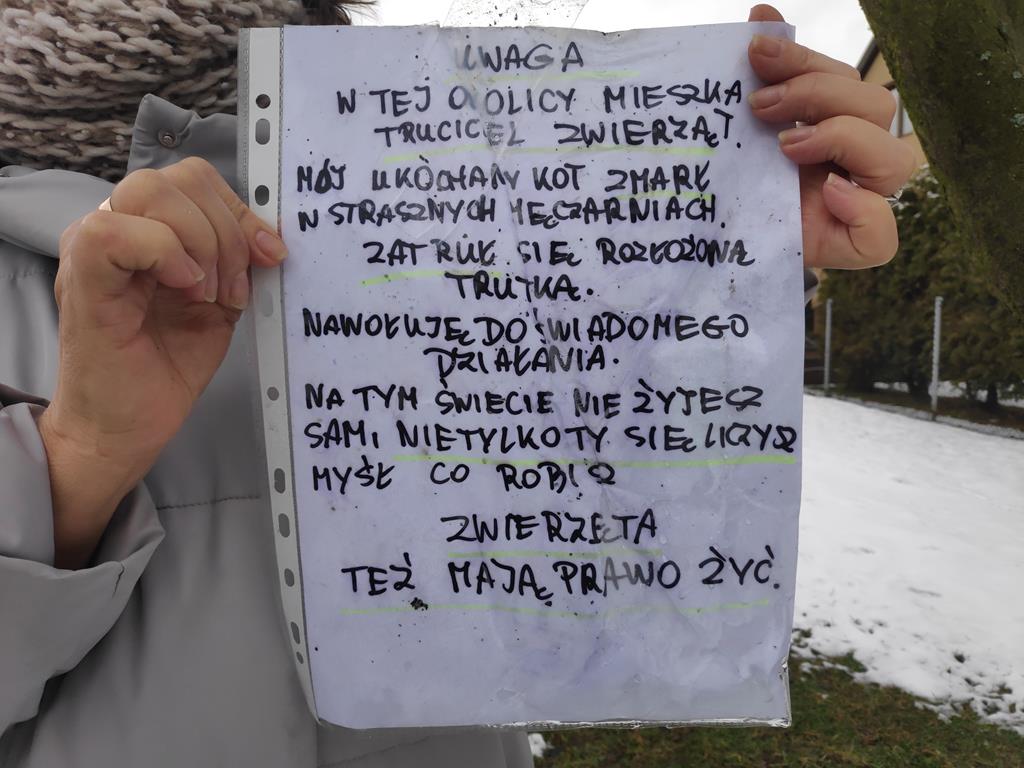 UWAGA
W TEJ OKOLICY MIESZKA
TRUCICEL ZWIERZĄT.
MÓJ UKOCHANY KOT ZMARŁ
W STRASZNYCH MĘCZARNIACH.
ZATRUŁ SIĘ ROZŁOŻONĄ
TRUTKĄ.
NAWOŁUJĘ DO ŚWIADOMEGO
DZIAŁANIA.
NA TYM ŚWIECIE NIE ŻYJECZ
SAMI NIETYLKOTY SIĘ LICZYSZ
MYŚŁ CO ROBISZ
ZWIERZĘTA
TEŻ MAJĄ PRAWO ŻYĆ.